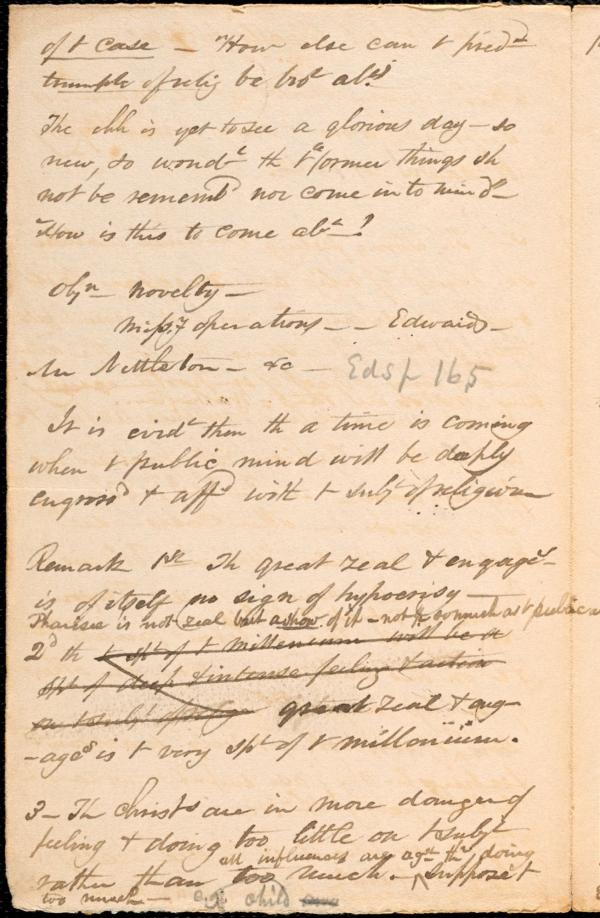 of t case — How else can t pred^d
triumph of relig be bro^t ab^t?
The chh is yet to see a glorious day — so
new, so wond^l th t former things sh
not be rememb^d nor come into mind —
How is this to come ab^t — ?
Obj^n — novelty —
miss^y operations — — Edwards —
Mr Nettleton — &c — Eds p 165
It is evid^t then th a time is coming
when t public mind will be deeply
engross^d & aff^d with t subj^t of religion —
Remark 1st Th great zeal & engage^t —
is of itself no sign of hypocrisy —
Pharisee is not zeal but a show of it — not so much as t publican
2^d th t sp^t of t millennium will be a
sp^t of deep & intense feeling & action
on t subj^t of relig great zeal & eng-
-age^t is t very sp^t of t millennium.
3 — Th christ^s are in more danger of
feeling & doing too little on t subj^t
all influences are ag^st th^r doing
rather than too much. — Suppose t
too much — child